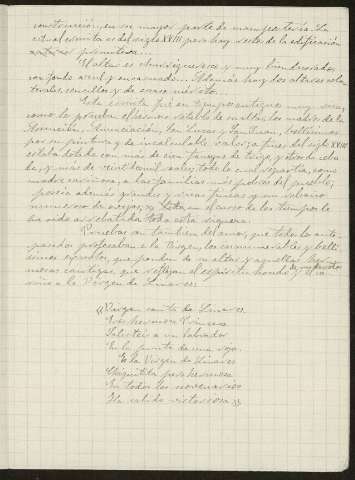 construcción, en su mayor parte de mampostería. La
actual ermita es del siglo XVIII pero hay resto de la edificación
primitiva.
El altar es churrigueresco y muy bien dorado,
con fondo azul y encarnado. Además hay dos altares cola-
terales sencillos y de escaso mérito.
Esta ermita fué en tiempos antiguos muy rica,
como lo prueban el hermoso retablo de su altar, los cuadros de la
Asunción, Anunciación, San Lucas y San Juan, bellísimos
por su pintura y de incalculable valor; a fines del siglo XVIII
estaba dotada con más de cien fanegas de trigo, y otras de ceba-
da, y más de veinte mil reales, todo lo cual repartía, como
madre cariñosa, a las familias más pobres del pueblo;
poseía además grandes y ricas fincas y un rebaño
numeroso de ovejas, toda en el curso de los tiempos le
ha sido arrebatada toda esta riqueza.
Pruebas son también del amor, que todos los ante-
pasados profesaban a la Virgen, los innumerables y bellí-
simos exvotos, que penden de su altar y aquellas her-
mosas cantigas, que reflejan el espíritu hondo y
sino a la Virgen de Linares.
"Virgen santa de Linares
Sois hermosa Princesa
Salísteis a un Salvador
En la punta de una
Es la Virgen de Linares
Chiquitita pero hermosa
En todos los novenarios
Ha salido victoriosa"